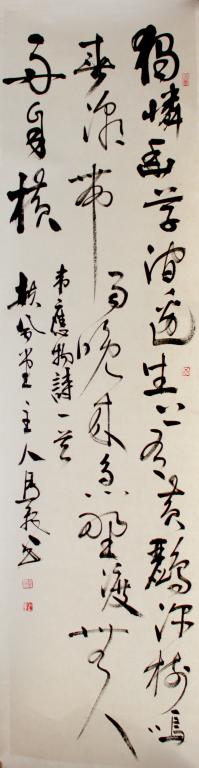 獨憐幽草澗邊生上有黃鸝深樹鳴
春潮帶雨晚來急野渡無人
舟自橫
韋應物詩一首
扶風堂主人馬